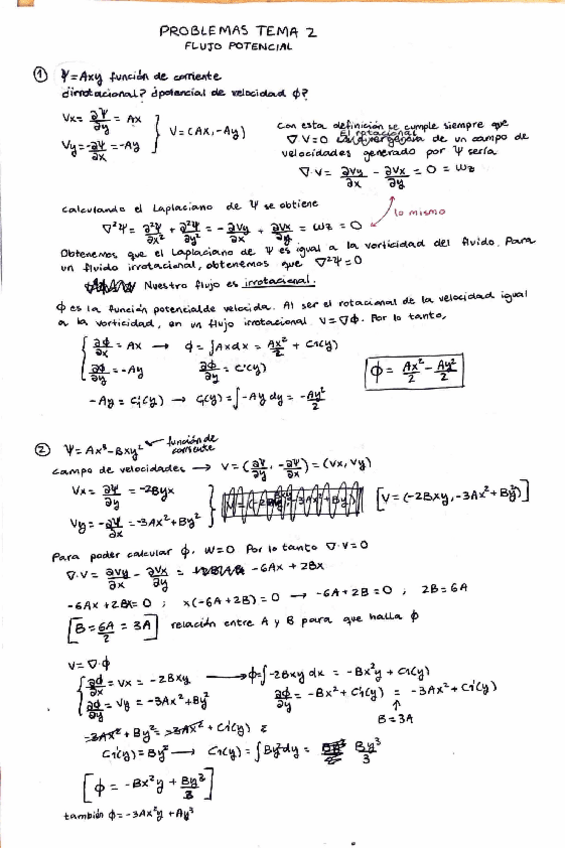 PROBLEMAS TEMA 2
FLUJO POTENCIAL
① Ψ=Axy función de corriente
¿irrotacional? ¿potencial de velocidad ϕ?
Vx = ∂Ψ/∂y = AX
Vy = -∂Ψ/∂x = -Ay
V=(AX,-Ay)
con esta definición se cumple siempre que
∇V=0 El rotacional de un campo de
velocidades generado por Ψ sería
∇·V = ∂Vy/∂x - ∂Vx/∂y = 0 = Wz
calculando el Laplaciano de Ψ se obtiene
lo mismo
∇²Ψ = ∂²Ψ/∂x² + ∂²Ψ/∂y² = -∂Vy/∂x + ∂Vx/∂y = Wz = 0
Obtenemos que el Laplaciano de Ψ es igual a la vorticidad del fluido. Para
un fluido irrotacional, obtenemos que ∇²Ψ=0
Nuestro flujo es irrotacional.
ϕ es la función potencial de velocida. Al ser el rotacional de la velocidad igual
a la vorticidad, en un flujo irrotacional V=∇ϕ. Por lo tanto,
∂ϕ/∂x = AX → ϕ=∫Axdx = Ax²/2 + C1(y)
∂ϕ/∂y = -Ay ∂ϕ/∂y = C'(y)
ϕ = Ax²/2 - Ay²/2
-Ay = C1'(y) → C1(y)=∫-Ay dy = -Ay²/2
② Ψ=Ax³-Bxy² ← función de corriente
campo de velocidades → V=(∂Ψ/∂y, -∂Ψ/∂x)=(Vx,Vy)
Vx = ∂Ψ/∂y = -2Byx
Vy = -∂Ψ/∂x = -3Ax²+By²
[V=(-2Bxy,-3Ax²+By²)]
Para poder calcular ϕ, W=0 Por lo tanto ∇·V=0
∇·V = ∂Vy/∂x - ∂Vx/∂y = -6Ax + 2Bx
-6Ax+2Bx=0 ; x(-6A+2B)=0 → -6A+2B=0 ; 2B=6A
[B=6A/2 = 3A] relación entre A y B para que halla ϕ
V=∇·ϕ
∂ϕ/∂x = Vx = -2Bxy → ϕ=∫-2Bxy dx = -Bx²y + C1(y)
∂ϕ/∂y = Vy = -3Ax²+By² ∂ϕ/∂y = -Bx²+C1'(y) = -3Ax²+C1'(y)
↑
B=3A
-3Ax²+By²=-3Ax²+C1'(y)
C1'(y)=By² → C1(y)=∫By²dy = By³/3
[ϕ = -Bx²y + By³/3]
también ϕ=-3Ax²y +Ay³